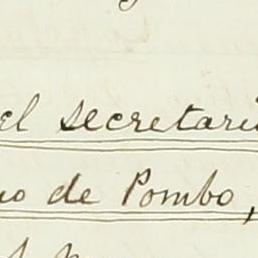 el secretari
no de Pombo,